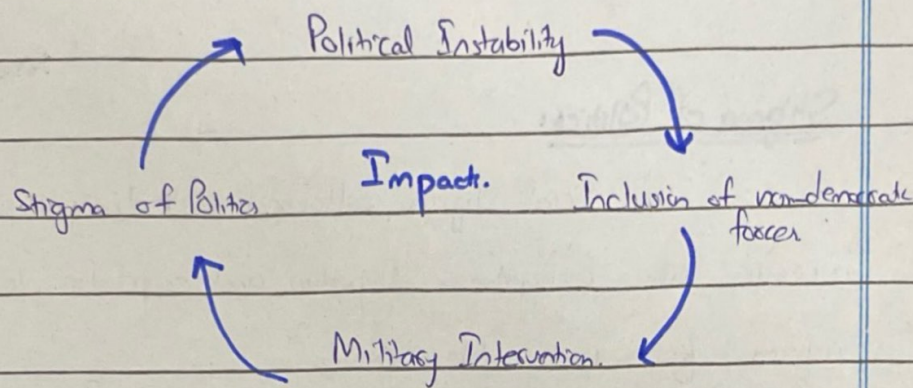 Political Instability
Impact.
Stigma of Politics
Inclusion of non-democratic
forces
Military Intervention.